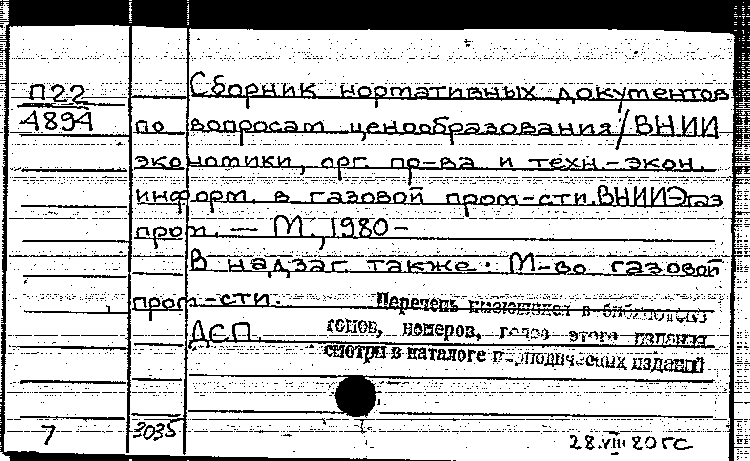 П22
4894
Сборник нормативных документов
по вопросам ценообразования / ВНИИ
экономики, орг. пр-ва и техн.-экон.
информ. в газовой пром-сти. ВНИИЭгаз
пром. — М., 1980 –
В надзаг. также: М-во газовой
пром-сти.
Перечень имеющихся в библиотеке
томов, номеров, годов этого издания
смотри в каталоге периодических изданий
ДСП.
7
3035
28.VIII 80 ГС